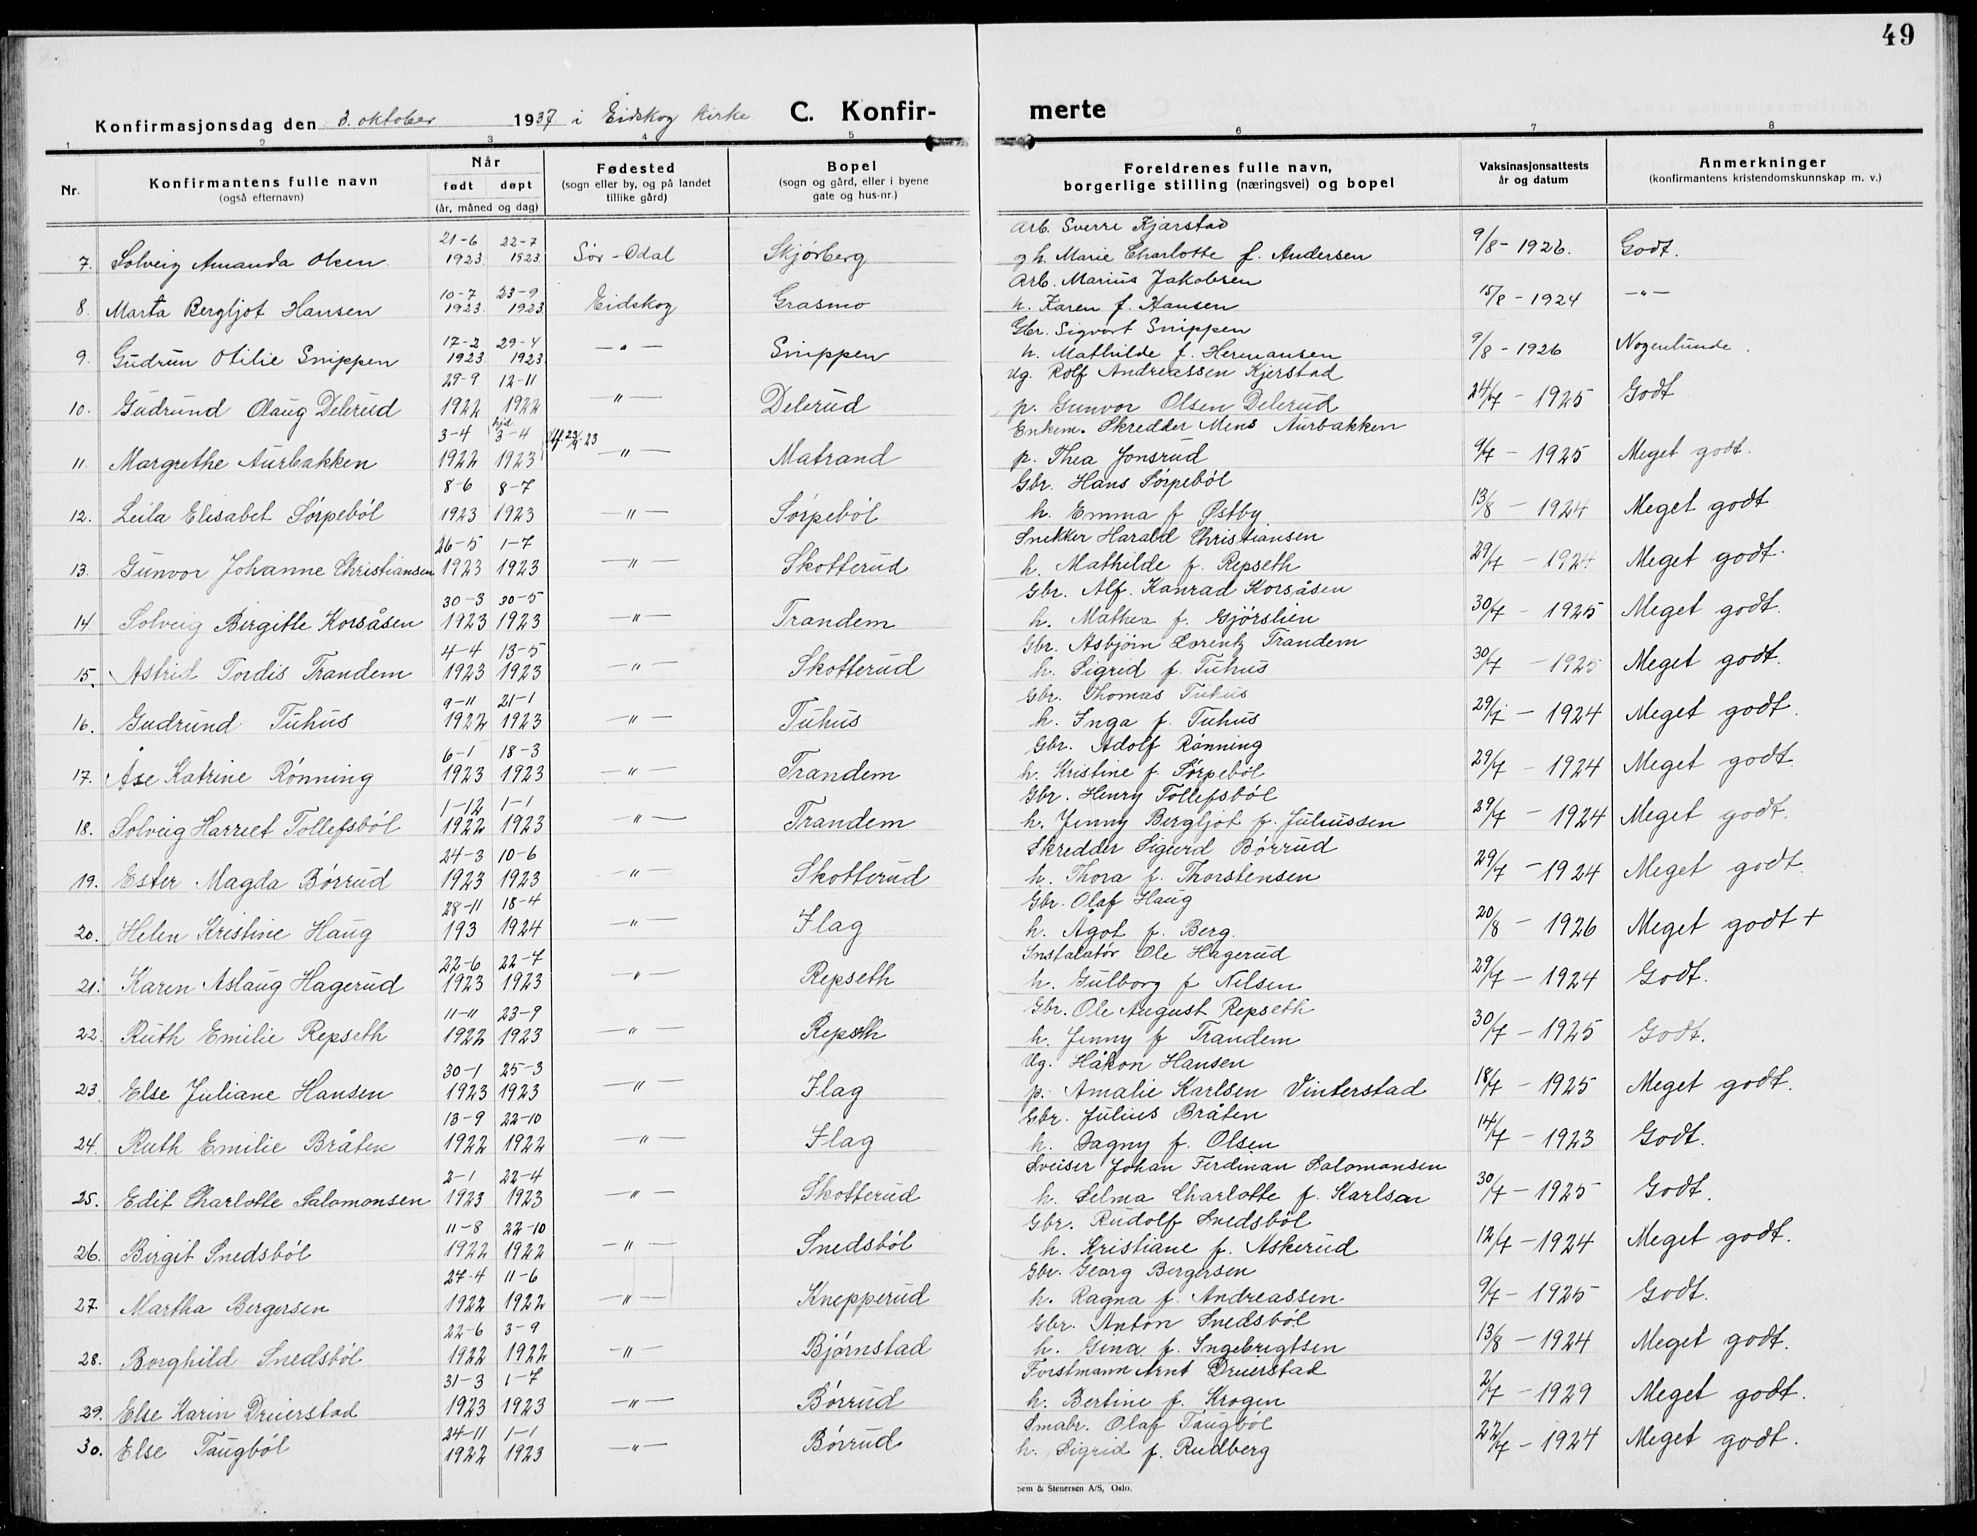 49
Konfirmasjonsdag den 3. oktober 1937 i Eidskog kirke. C. Konfir- merte
1 2 3 4 5 6 7 8
Nr. Konfirmantens fulle navn (også efternavn) Når født døpt (år, måned og dag) Fødested (sogn eller by, og på landet tillike gård) Bopel (sogn og gård, eller i byene gate og hus-nr.) Foreldrenes fulle navn, borgerlige stilling (næringsvei) og bopel Vaksinasjonsattests år og datum Anmerkninger (konfirmantens kristendomskunnskap m. v.)
7. Solveig Amanda Olsen 21-6 1923 22-7 1923 Sør-Odal Skjørberg Arb. Sverre Kjærstad og h. Marie Charlotte f. Andersen 9/8 - 1926. Godt.
8. Marta Bergljot Hansen 10-7 1923 23-9 1923 Eidskog Grasmo Arb. Marius Jakobsen h. Karen f. Hansen 15/8 - 1924 -"-
9. Gudrun Otilie Snippen 17-2 1923 29-4 1923 -"- Snippen Gbr. Sigvart Snippen h. Mathilde f. Hermansen 9/8 - 1926 Nogenlunde.
10. Gudrund Olaug Delerud 29-9 1922 12-11 1922 -"- Delerud Ug. Rolf Andreassen Kjerstad p. Gunvor Olsen Delerud 24/7 - 1925 Godt
11. Margrethe Aurbakken 3-4 1922 hjd. 3-4 1923 -"- Matrand Enkem. Skredder Mens Aurbakken p. Thea Jonsrud 9/7 - 1925 Meget godt.
12. Leila Elisabet Sørpebøl 8-6 1923 8-7 1923 -"- Sørpebøl Gbr. Hans Sørpebøl h. Emma f Østby 13/8 - 1924 Meget godt
13. Gunvor Johanne Christiansen 26-5 1923 1-7 1923 -"- Skotterud Snekker Harald Christiansen h. Mathilde f. Repseth 29/7 - 1924 Meget godt.
14 Solveig Birgitte Korsåsen 30-3 1923 30-5 1923 -"- Trandem Gbr. Alf. Kanrad Korsåsen h. Mathea f. Gjørslien 30/7 - 1925 Meget godt.
15. Astrid Tordis Trandem 4-4 1923 13-5 1923 -"- Skotterud Gbr. Asbjørn Lorentz Trandem h. Sigrid f. Tuhus 30/7 - 1925 Meget godt.
16. Gudrund Tuhus 9-11 1922 21-1 1923 -"- Tuhus Gbr. Thomas Tuhus h. Inga f. Tuhus 29/7 - 1924 Meget godt.
17. Åse Katrine Rønning 6-1 1923 18-3 1923 -"- Trandem Gbr. Adolf Rønning h. Kristine f. Sørpebøl 29/7 - 1924 Meget godt.
18. Solveig Harriet Tollefsbøl 1-12 1922 1-1 1923 -"- Trandem Gbr. Henry Tollefsbøl h. Jenny Bergljot f. Juliussen 29/7 - 1924 Meget godt.
19. Ester Magda Børrud 24-3 1923 10-6 1923 -"- Skotterud Skredder Sigurd Børrud h. Thora f. Thorstensen 29/7 - 1924 Meget godt.
20. Helen Kristine Haug 28-11 193 18-4 1924 -"- Flag Gbr. Olaf Haug h. Ågot f. Berg. 20/8 - 1926 Meget godt +
21. Karen Aslaug Hagerud 22-6 1923 22-7 1923 -"- Repseth Instalatør Ole Hagerud h. Gulborg f Nilsen 29/7 - 1924 Godt.
22. Ruth Emilie Repseth 11-11 1922 23-9 1923 -"- Repseth Gbr. Ole August Repseth h. Jenny f Trandem 30/7 - 1925 Godt.
23 Else Juliane Hansen 30-1 1923 25-3 1923 -"- Flag Ug. Håkon Hansen p. Amalie Karlsen Vinterstad 18/7 - 1925 Meget godt.
24. Ruth Emilie Bråten 13-9 1922 22-10 1922 -"- Flag Gbr. Julius Bråten h. Dagny f. Olsen 14/7 - 1923 Godt.
25. Edit Charlotte Salamonsen 2-1 1923 22-4 1923 -"- Skotterud Sveiser Johan Ferdinan Salamonsen h. Selma Charlotte f. Karlson 30/7 - 1925 Godt.
26. Birgit Snedsbøl 11-8 1922 22-10 1922 -"- Snedsbøl Gbr. Rudolf Snedsbøl h. Kristiane f. Askerud 12/7 - 1924 Meget godt.
27. Martha Bergersen 27-4 1922 11-6 1922 -"- Knepperud Gbr. Georg Bergersen h. Ragna f. Andreassen 9/7 - 1925 Godt.
28. Borghild Snedsbøl 22-6 1922 3-9 1922 -"- Bjørnstad Gbr. Anton Snedsbøl h. Gina f. Ingebrigtsen 13/8 - 1924 Meget godt.
29. Else Karin Dreierstad 31-3 1923 1-7 1923 -"- Børrud Forstmann Arnt Dreierstad h. Bertine f. Krogen 2/7 - 1929 Meget godt.
30. Else Taugbøl 24-11 1922 1-1 1923 -"- Børrud Smabr. Olaf Taugbøl h. Sigrid f. Rudberg 22/7 - 1924 Meget godt.
Sem & Stenersen A/S, Oslo.